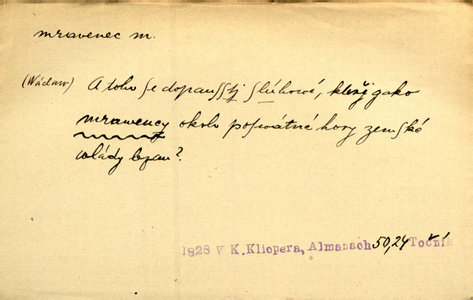 mravenec m.
(Václaw) A toho se dopausstj sluhowé, kteřj gako
mrawency okolo poswátné hory zemské
wlády lezau?
1828 V K. Klicpera, Almanach 50,24 Točník